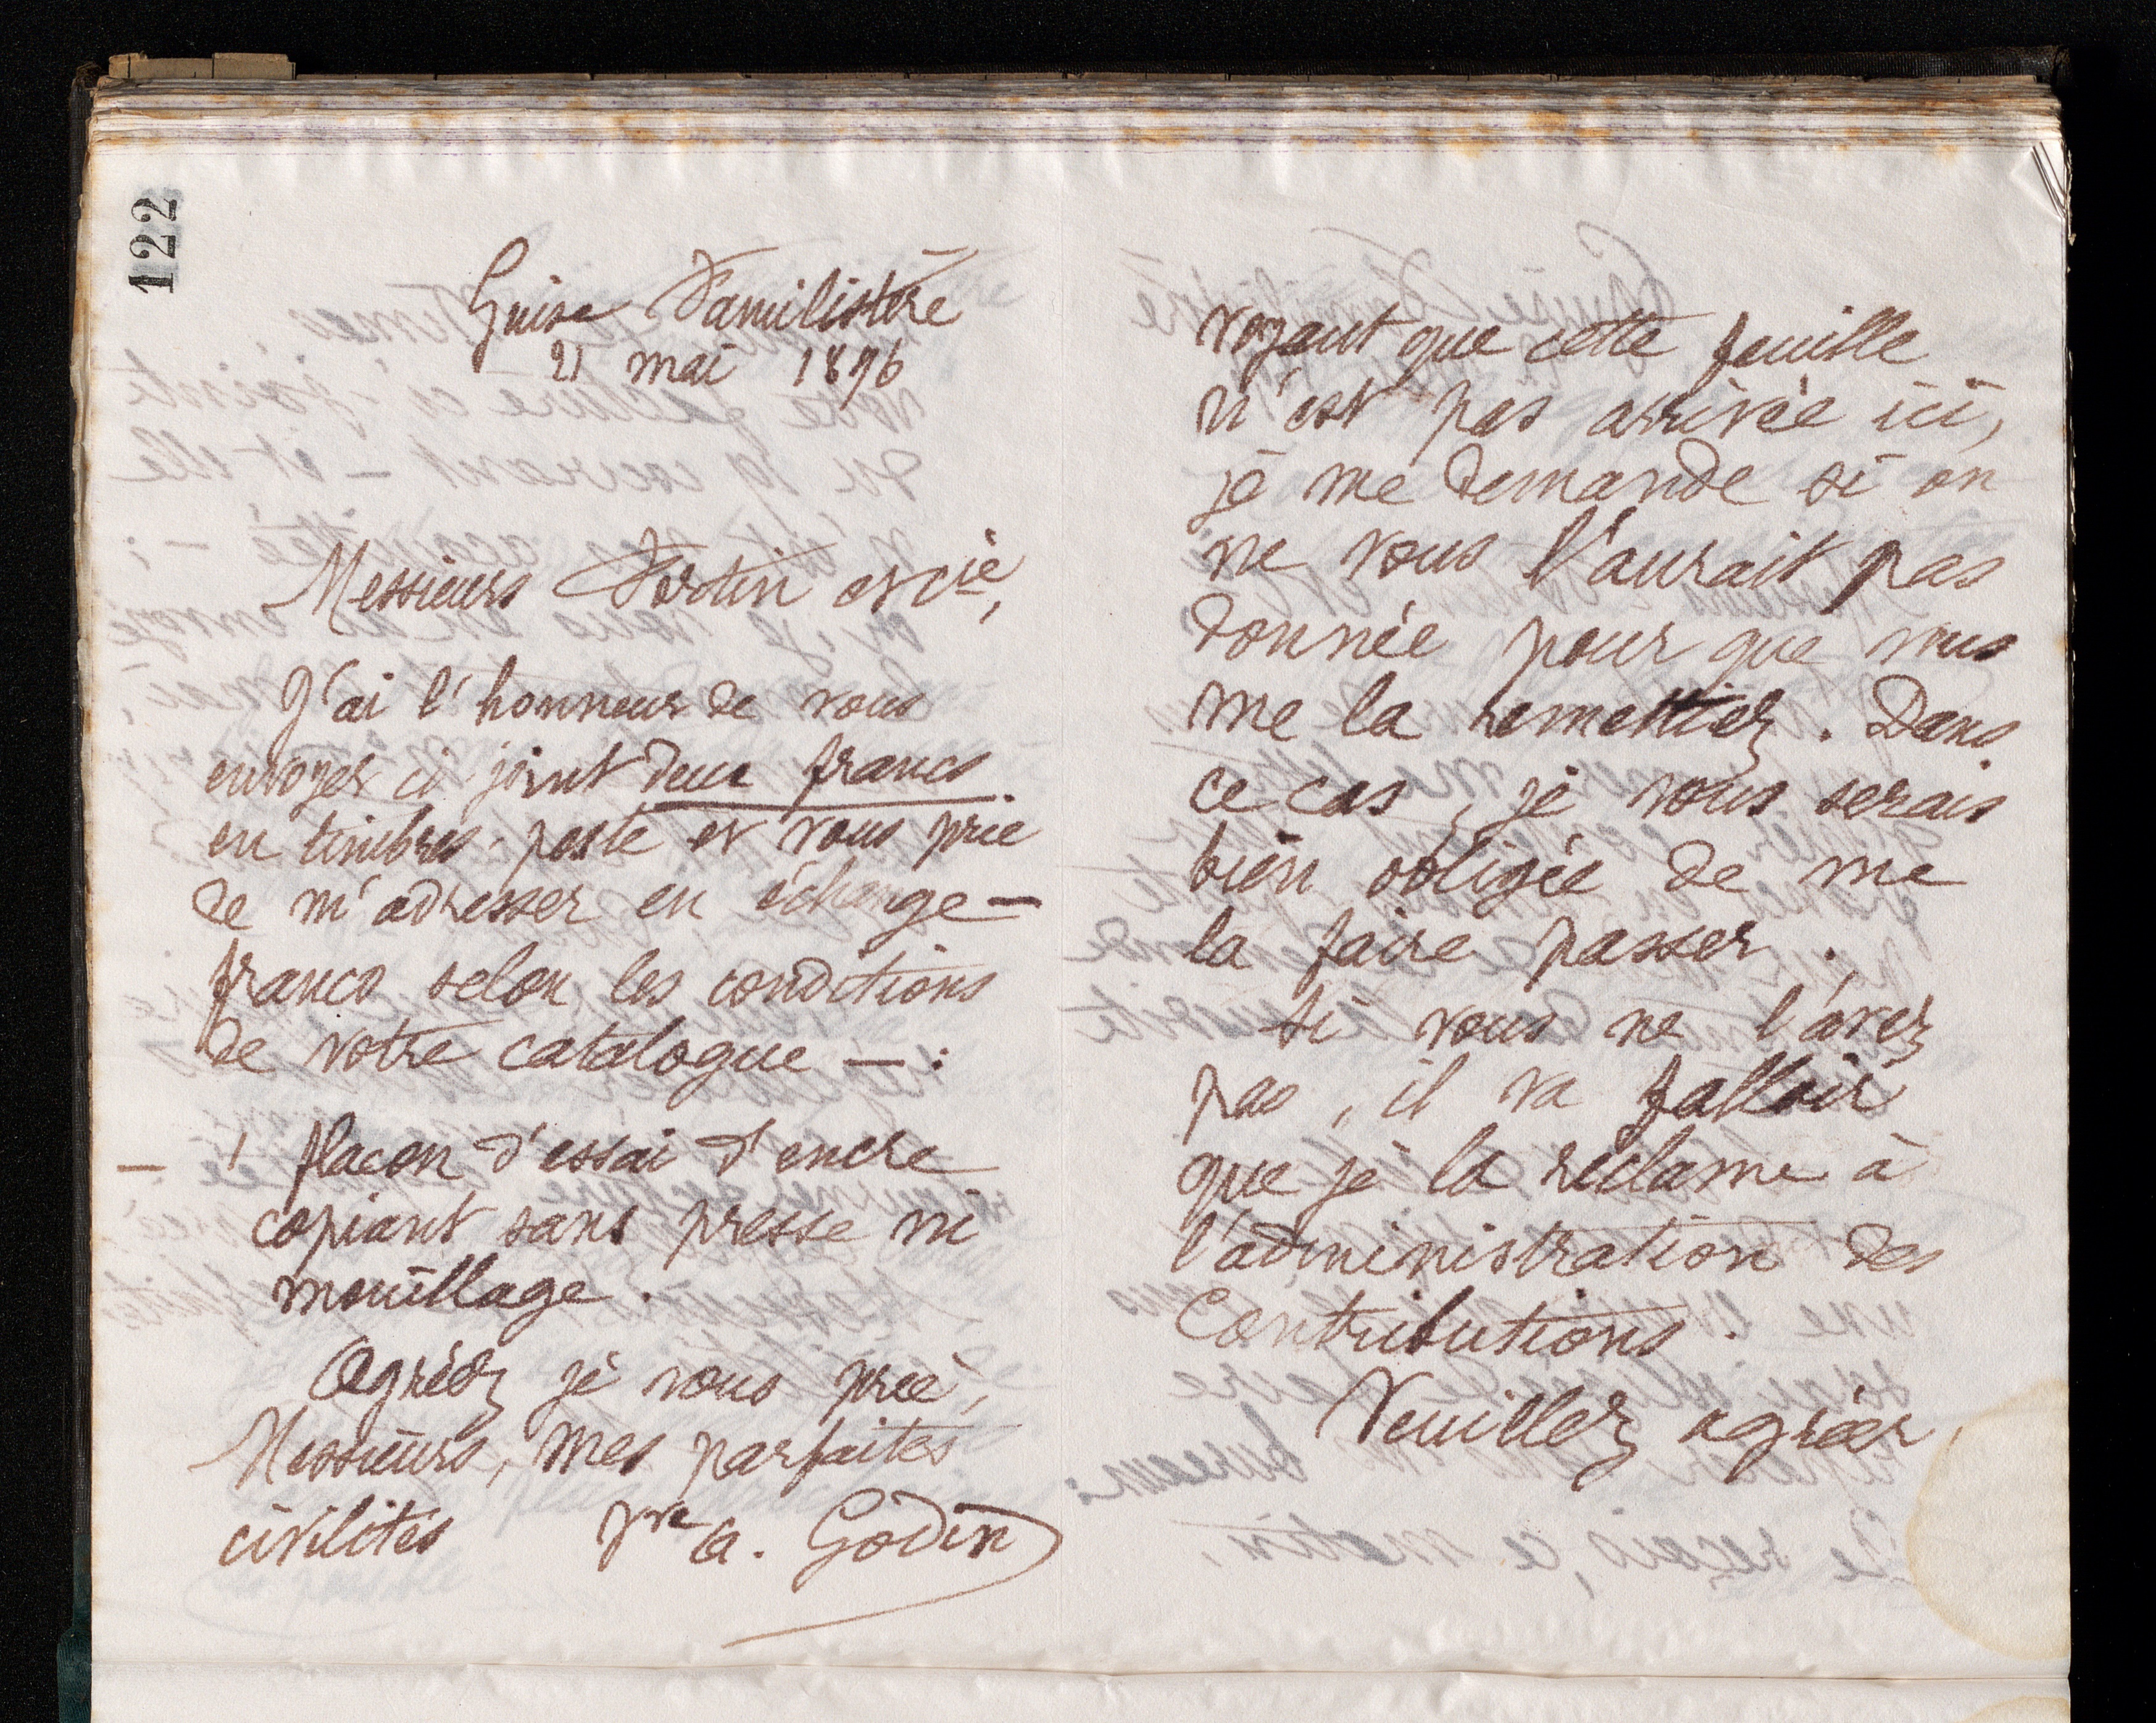 122
Guise Familistère
21 mai 1896
Messieurs Fortin et Cie,
J'ai l'honneur de vous
envoyer ci joint deux francs
en timbres-poste et vous prie
de m'adresser en échange —
franco selon les conditions
de votre catalogue — :
— 1 flacon d'essai d'encre
copiant sans presse ni
mouillage.
Agréez je vous prie,
Messieurs, mes parfaites
civilités Vve A. Godin
voyant que cette feuille
n'est pas arrivée ici,
je me demande si on
ne vous l'aurait pas
donnée pour que vous
me la remettiez. Dans
ce cas, je vous serais
bien obligée de me
la faire passer.
Si vous ne l'avez
pas, il va falloir
que je la réclame à
l'administration des
Contributions.
Veuillez agréer